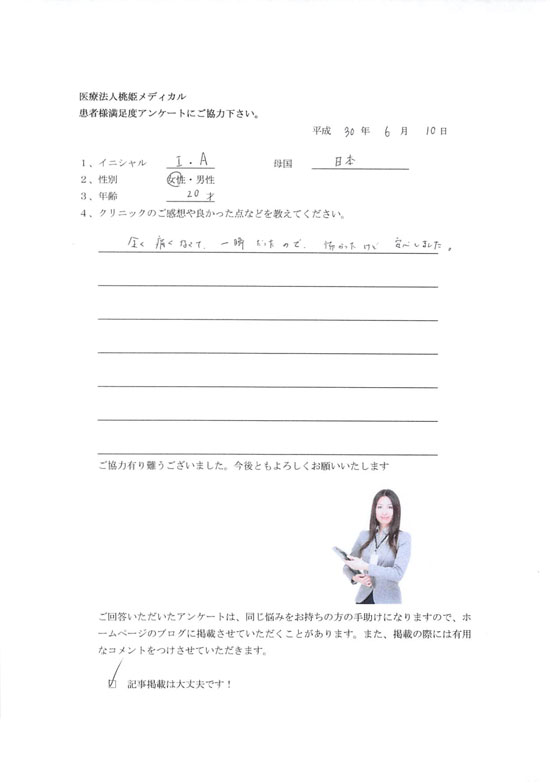 医療法人桃姫メディカル
患者様満足度アンケートにご協力下さい。
平成 30 年 6 月 10 日
1、イニシャル I.A 母国 日本
2、性別 女性・男性
3、年齢 20 才
4、クリニックのご感想や良かった点などを教えてください。
全く痛くなくて、一瞬だったので、怖かったけど安心しました。
ご協力有り難うございました。今後ともよろしくお願いいたします
ご回答いただいたアンケートは、同じ悩みをお持ちの方の手助けになりますので、ホ
ームページのブログに掲載させていただくことがあります。また、掲載の際には有用
なコメントをつけさせていただきます。
☑ 記事掲載は大丈夫です！